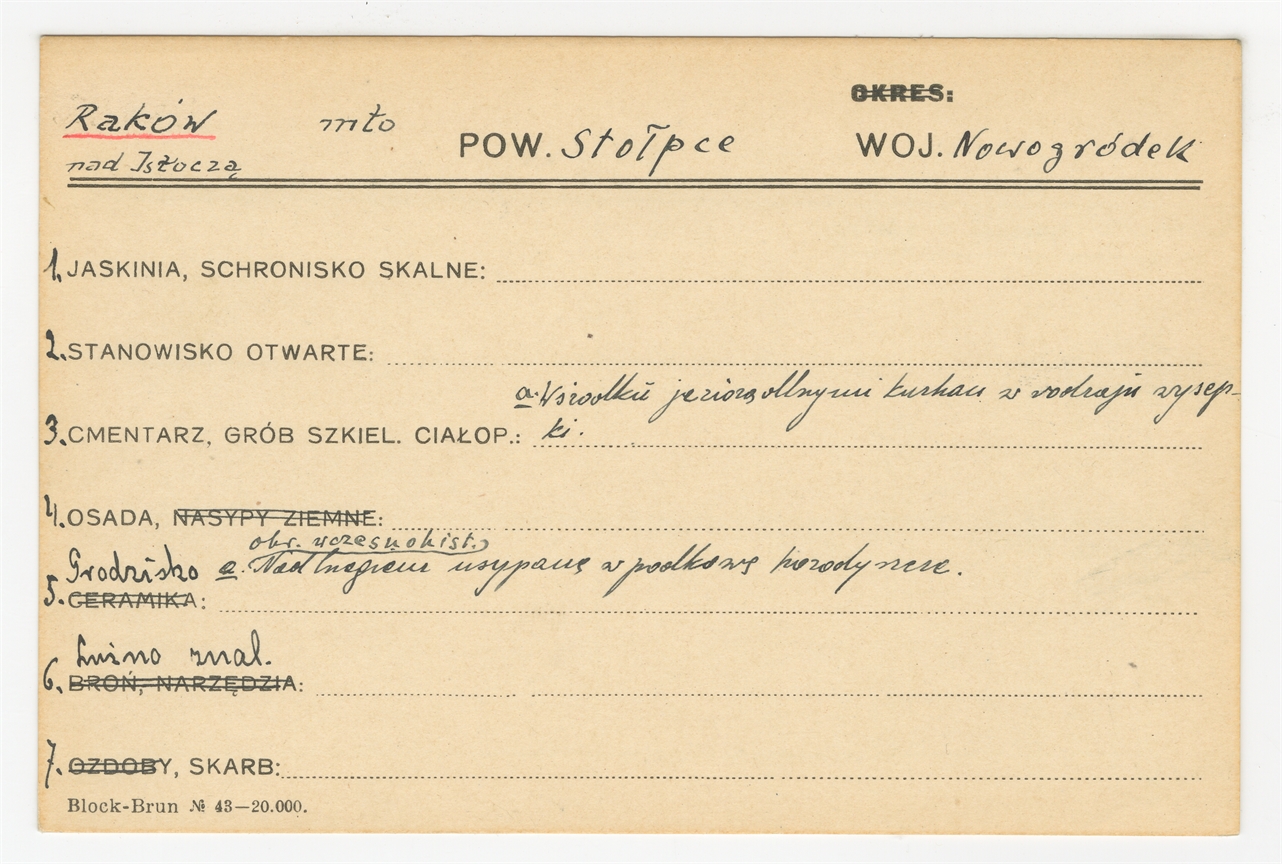 OKRES:
Raków mło POW. Stołpce WOJ. Nowogródek
nad Isłoczą
1. JASKINIA, SCHRONISKO SKALNE:
2. STANOWISKO OTWARTE:
a. Wśrodku jeziora kurhan w rodzaju wysep-
3. CMENTARZ, GRÓB SZKIEL. CIAŁOP.: ki.
4. OSADA, NASYPY ZIEMNE:
okr. wczesnohist.
Grodzisko a. Nad usypane w podkowę horodyszcze.
5. CERAMIKA:
Luźno znal.
6. BROŃ, NARZĘDZIA:
7. OZDOBY, SKARB:
Block-Brun № 43—20.000.